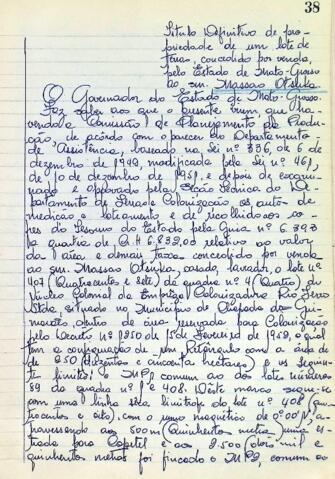 38
Titulo Definitivo de pro-
priedade de um lote de
terras, concedido por venda,
pelo Estado de Mato-Grosso
ao snr. Massao Otsuka
O Governador do Estado de Mato-Grosso.
Faz saber aos que o presente virem, que ha-
vendo a Comissão de Planejamento da Produ-
ção, de acôrdo com o parecer do Departamento
de Assistência, baseado na lei nº 336, de 6 de
dezembro de 1949, modificada pela lei nº 461,
de 10 de dezembro de 1951, e depois de exami-
nado e aprovado pela Secção Técnica do De-
partamento de Terras e Colonização os autos de
medição e loteamento e de recolhido aos co-
fres do Tesouro do Estado pela Guia nº 6.393
a quantia de Cr$ 6.832,00 relativo ao valor
da área e demais taxas concedido por venda
ao snr. Massao Otsuka, casado, lavrador, o lote nº
407 (Quatrocentos e sete) da quadra nº 4 (Quatro), do
Núcleo Colonial da Emprêsa Colonizadora Rio Ferro
Ltda, situado no Municipio de Chapada dos Gui-
marães, dentro da área reservada para Colonização
pelo Decreto nº 1250 de de Fevereiro de 1952, o qual
tem a configuração de um Retangulo com a área de
250 (duzentos e cincoenta hectares) e os seguin-
tes limites: o MP1 comum ao dos lotes números
39 da quadra nº 1 e 408. Dêste marco segue-se
com uma linha seca limitrofe do lote nº 408 (qua-
trocentos e oito), com o rumo magnético de 0º00'N, a-
travessando aos 500m (Quinhentos metros) uma es-
trada para Capital e aos 2.500 (dois mil e
quinhentos metros foi fincado o MP2, comum ao